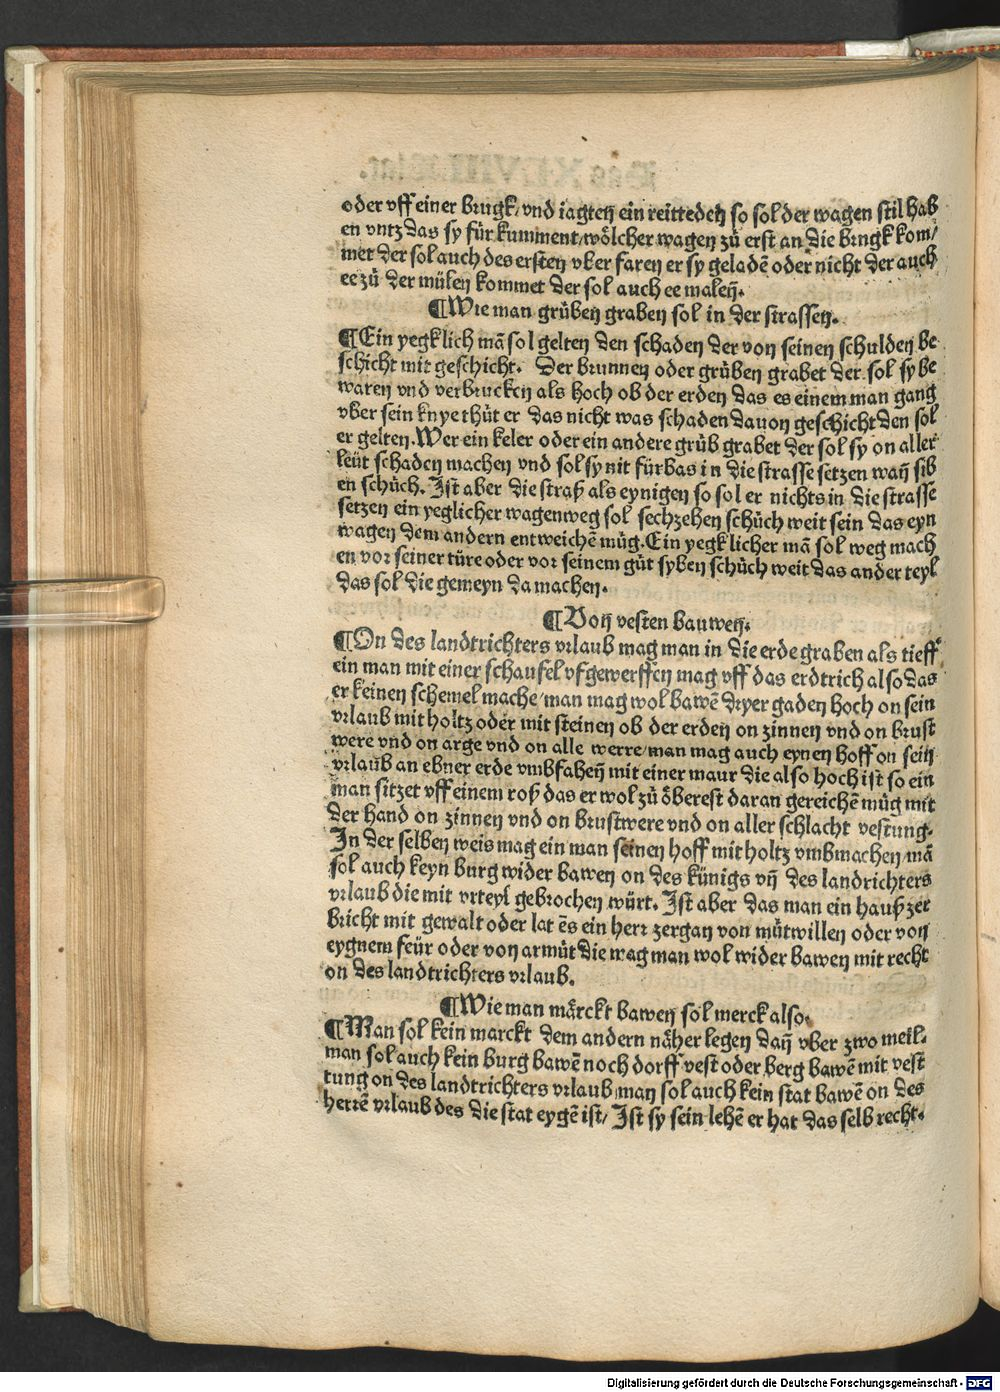 oder vff einer brugk/vnd iagten ein reitteden so sol der wagen stil hab
en vntz das sy für kumment/wölcher wagen zů erst an die brugk kom/
met der sol auch des ersten vber faren er sy geladē oder nicht der auch
ee zů der mülen kommet der sol auch ee maleñ.
¶Wie man grůben graben sol in der strassen.
¶Ein yegklich mā sol gelten den schaden der von seinen schulden be
schicht mit geschicht. Der brunnen oder grůben grabet der sol sy be
waren vnd verbrucken als hoch ob der erden das es einem man gang
vber sein knye thůt er das nicht was schaden dauon geschicht den sol
er gelten.Wer ein keler oder ein andere grůb grabet der sol sy on aller
leüt schaden machen vnd sol sy nit fürbas in die strasse setzen wañ sib
en schůch. Ist aber die straß als eynigen so sol er nichts in die strasse
setzen ein yeglicher wagenweg sol sechzehen schůch weit sein das eyn
wagen dem andern entweichē müg.Ein yegklicher mā sol weg mach
en vor seiner türe oder vor seinem gůt syben schůch weit das ander teyl
das sol die gemeyn da machen.
¶Von vesten bauwen.
¶On des landtrichters vrlaub mag man in die erde graben als tieff
ein man mit einer schaufel vfgewerffen mag vff das erdtrich also das
er keinen schemel mache/man mag wol bawē dryer gaden hoch on sein
vrlaub mit holtz oder mit steinen ob der erden on zinnen vnd on brust
were vnd on arge vnd on alle werre/man mag auch eynen hoff on sein
vrlaub an ebner erde vmbfaheñ mit einer maur die also hoch ist so ein
man sitzet vff einem roß das er wol zů öberest daran gereichē müg mit
der hand on zinnen vnd on brustwere vnd on aller schlacht vestung.
In der selben weis mag ein man seinen hoff mit holtz vmbmachen/mā
sol auch keyn burg wider bawen on des künigs vñ des landrichters
vrlaub die mit vrteyl gebrochen würt. Ist aber das man ein hauß zer
bricht mit gewalt oder lat es ein herr zergan von můtwillen oder von
eygnem feür oder von armůt die mag man wol wider bawen mit recht
on des landtrichters vrlaub.
¶Wie man märckt bawen sol merck also.
¶Man sol kein marckt dem andern näher legen dañ vber zwo meil.
man sol auch kein burg bawē noch dorff vest oder berg bawē mit vest
tung on des landtrichters vrlaub/man sol auch kein stat bawē on des
herrē vrlaub des die stat eygē ist/ Ist sy sein lehē er hat das selb recht.
Digitalisierung gefördert durch die Deutsche Forschungsgemeinschaft - DFG